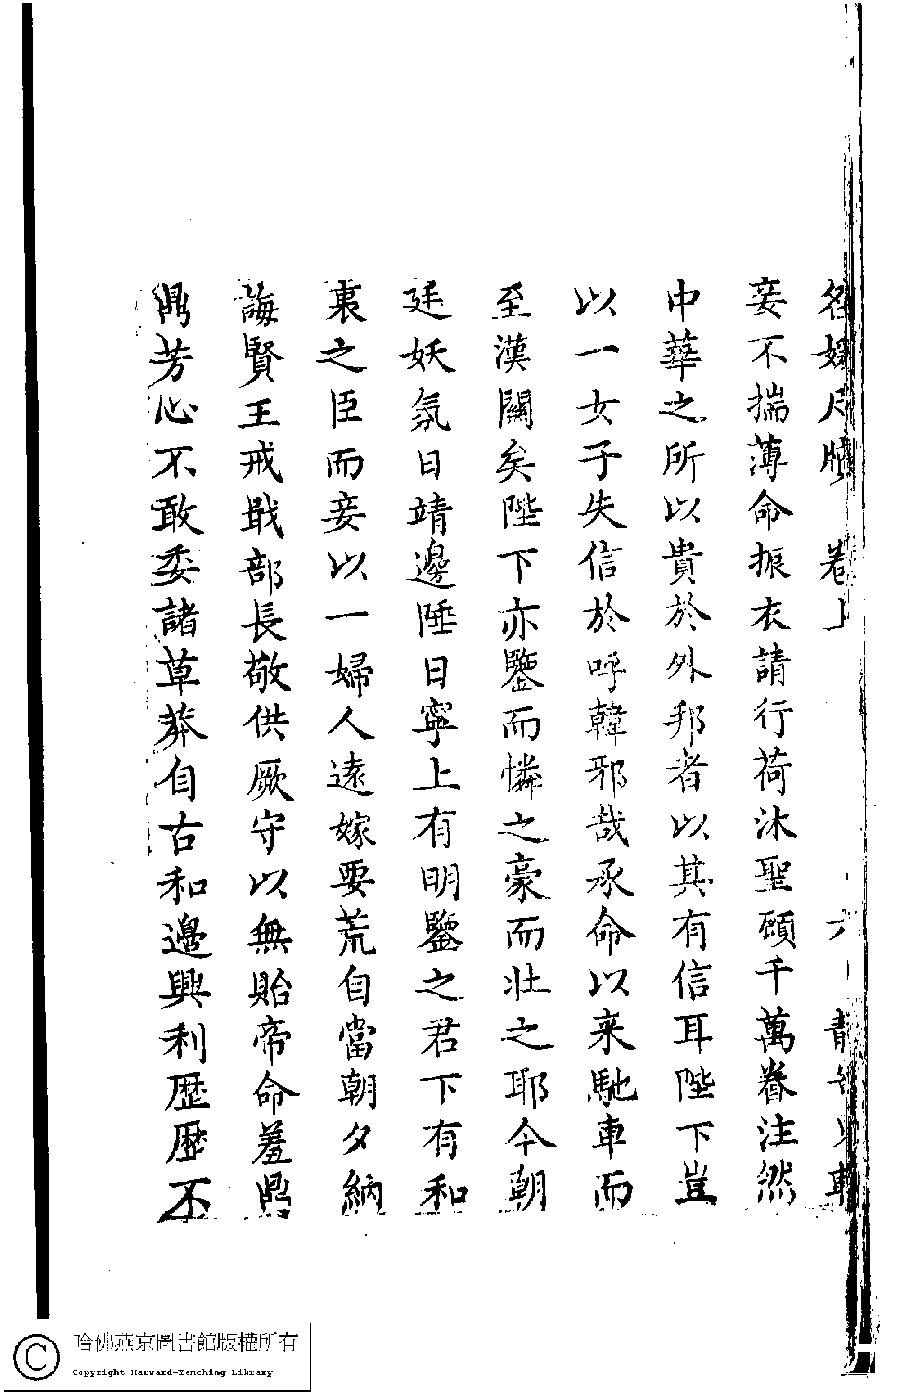 名媛尺牘 卷上 六
妾不揣薄命振衣請行荷沐聖顧千萬眷注然
中華之所以貴於外邦者以其有信耳陛下豈
以一女子失信於呼韓邪哉承命以来馳車而
至漢關矣陛下亦鑒而憐之豪而壯之耶今朝
廷妖氛日靖邊陲日寧上有明鑒之君下有和
衷之臣而妾以一婦人遠嫁要荒自當朝夕納
誨賢王戒戢部長敬供厥守以無貽帝命羞鼎
鼎芳心不敢委諸草莽自古和邊興利歷歷不
哈佛燕京圖書館版權所有
Copyright Harvard-Yenching Library